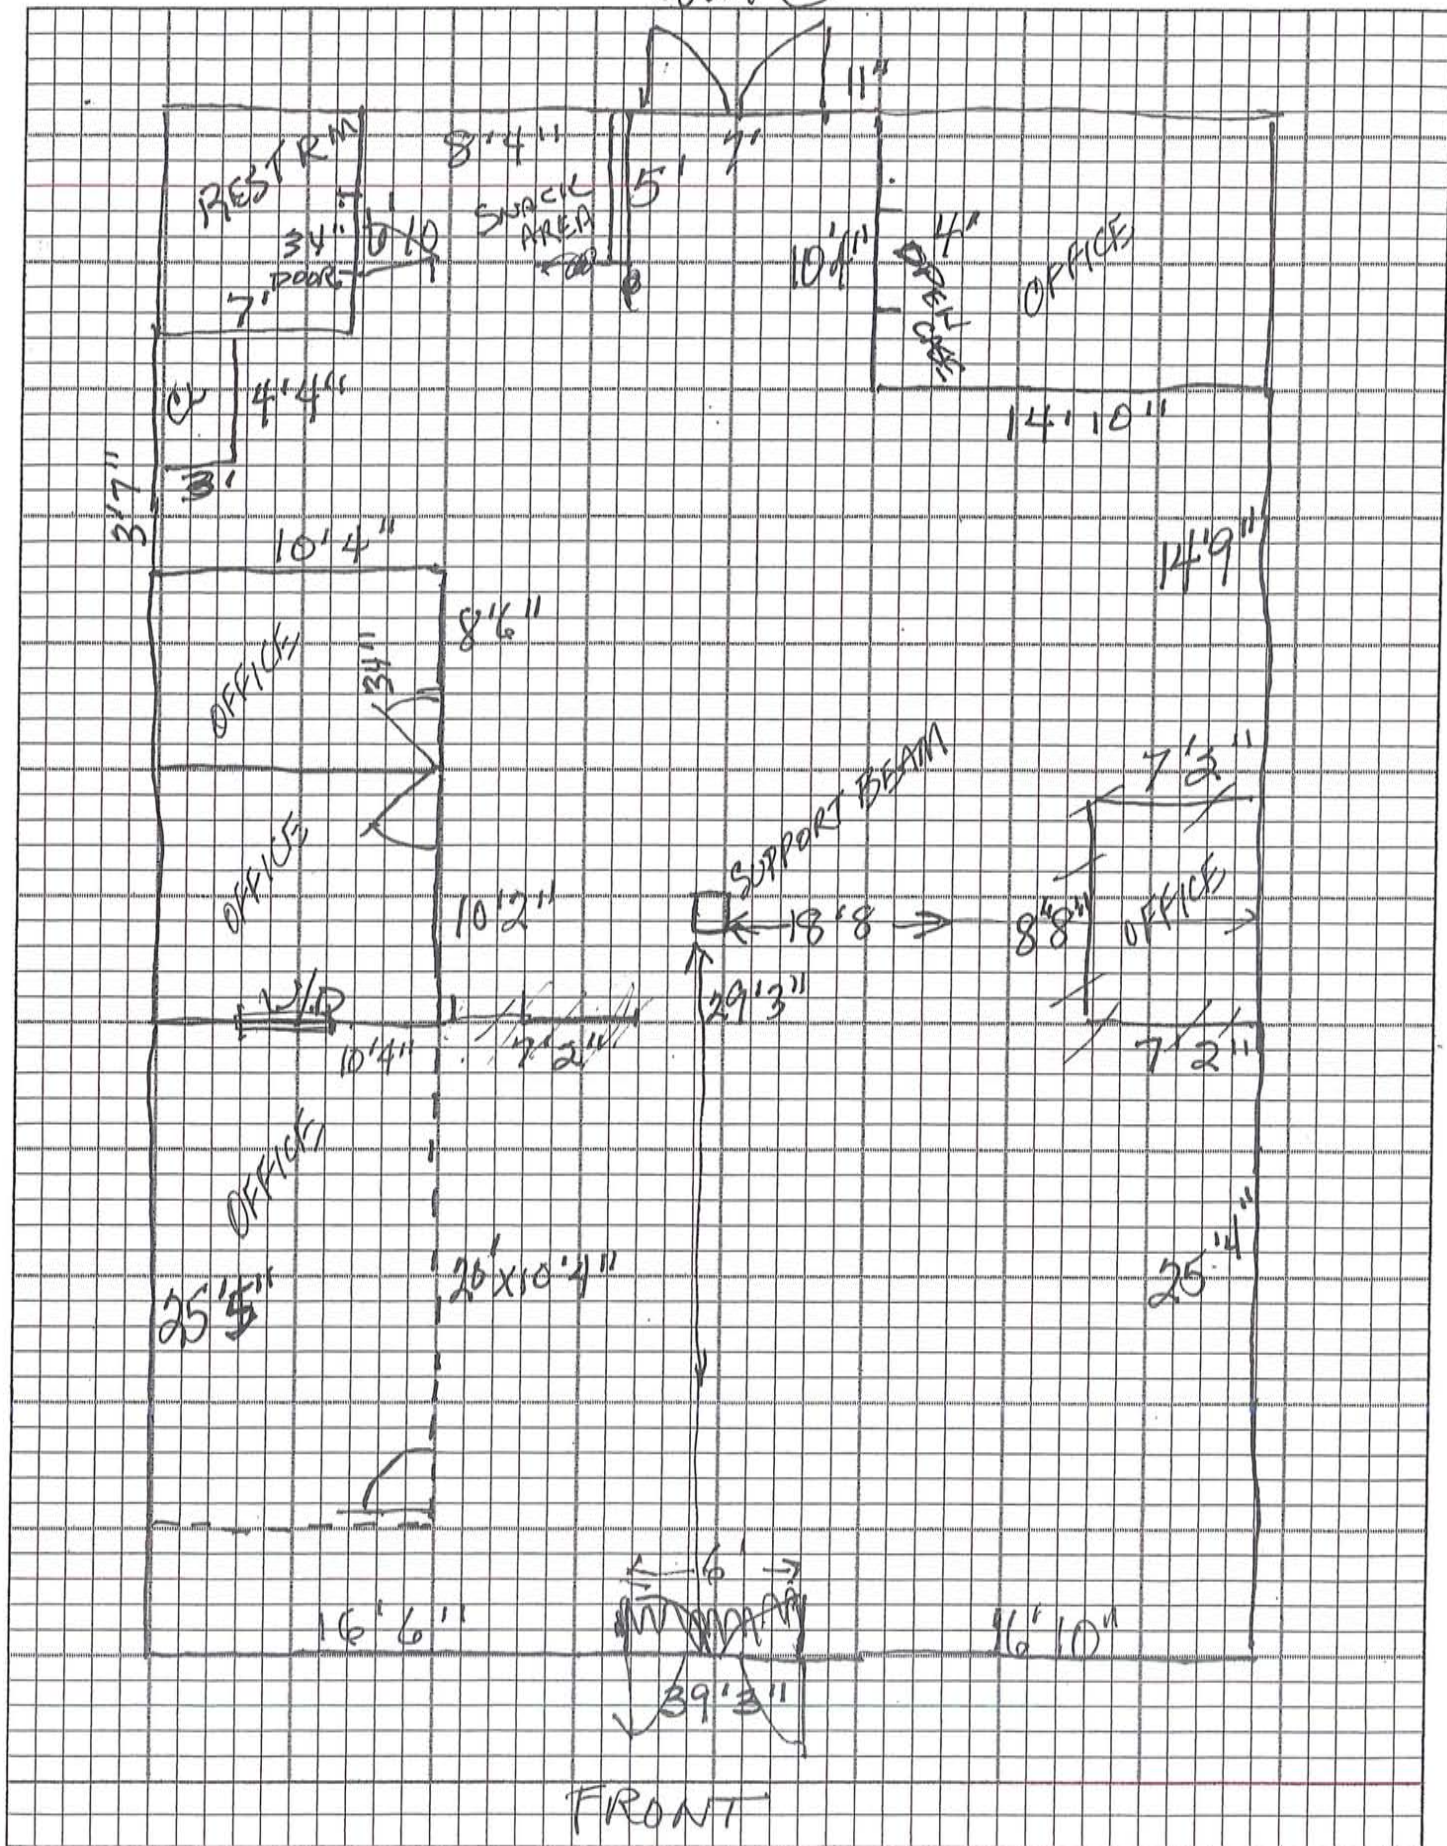 11"
REST RM
8'4"
7'
5'
SNACK
AREA
34"
DOOR
6'10
7'
10'4"
4"
OPEN
OFFICE
4'4"
3'
14'10"
3'7"
10'4"
14'9"
8'6"
OFFICE
34"
SUPPORT BEAM
7'2"
OFFICE
10'2"
18'8
8'8"
OFFICE
29'3"
10'4"
7'2"
7'2"
OFFICE
25'5"
20'x10'4"
25'4"
6'
16'6"
16'10"
39'3"
FRONT